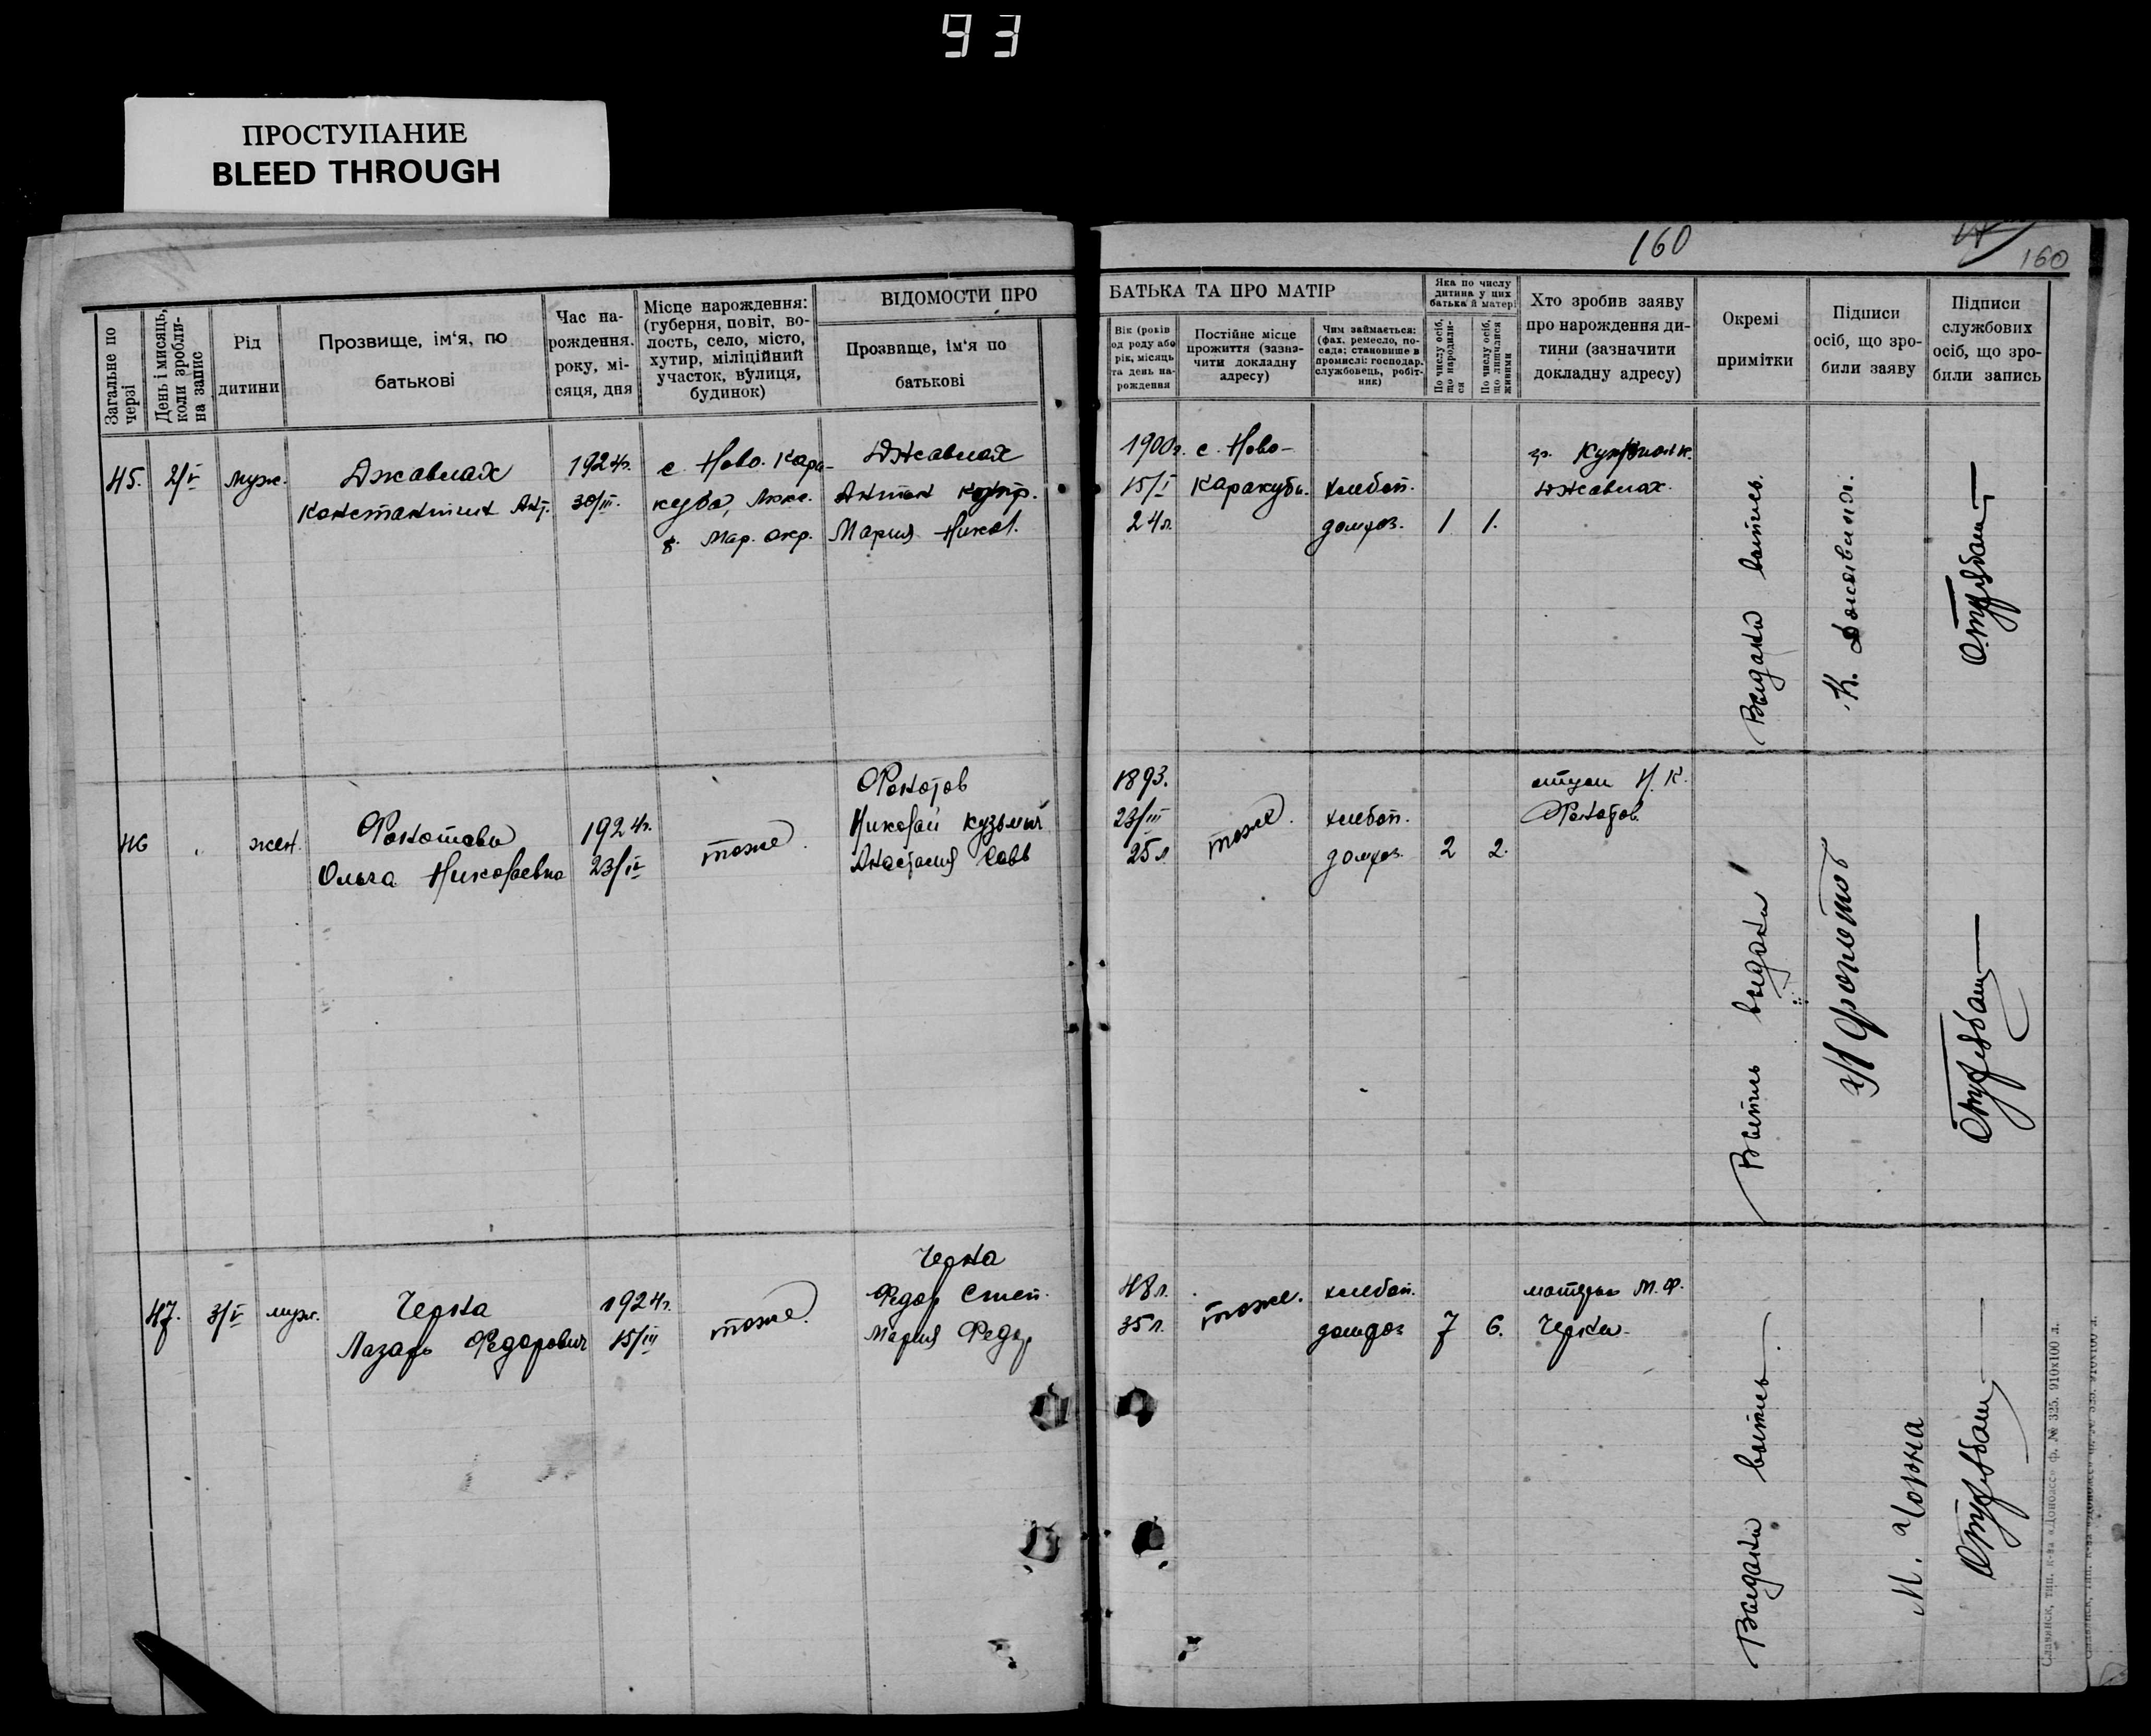 93
ПРОСТУПАНИЕ
BLEED THROUGH
160
160
ВІДОМОСТИ ПРО
БАТЬКА ТА ПРО МАТІР
Загальне по черзі
День і мисяць, коли зробли- на запис
Рід дитини
Прозвище, ім'я, по батькові
Час на-
рождення.
року, мі-
сяця, дня
Місце нарождення:
(губерня, повіт, во-
лость, село, місто,
хутир, міліційний
участок, вулиця,
будинок)
Прозвище, ім'я по
батькові
Вік (років
од роду або
рік, місяць
та день на-
рождення
Постійне місце
прожиття (зазна-
чити докладну
адресу)
Чим займається:
(фах, ремесло, по-
сада; становище в
промислі: господар,
службовець, робіт-
ник)
Яка по числу
дитина у цих
батька й матері
По числу осіб, що народили- ся
По числу осіб, що лишилися живими
Хто зробив заяву
про народження ди-
тини (зазначити
докладну адресу)
Окремі
примітки
Підписи
осіб, що зро-
били заяву
Підписи
службових
осіб, що зро-
били запись
45. 2/V муж.
Джавлах
Константин Ант.
1924г.
30/III.
с. Ново. Кара-
куба,
Мар. окр.
Джавлах
Антон
Мария Никол.
1900г.
15/I
24л.
с. Ново-
Каракуба.
хлебоп.
домхоз.
1 1.
гр.
Джавлах.
Выдана выпись.
К. Джавлах.
46
жен.
Фокотова
Ольга Николаевна
1924г.
23/IV
тоже.
Фокотов
Николай Кузьмич
Анастасия Савв
1893.
23/III
25л
тоже.
хлебоп.
домхоз.
2 2.
отцом Н. К.
Фокотов.
Выпись выдана
47. 3/V муж.
Черна
Лазарь Федорович
1924г.
15/III
тоже.
Черна
Федор Степ.
Мария Федор
48л.
35л.
тоже.
хлебоп.
домхоз
7 6.
матерью М. Ф.
Черна.
Выдана выпись.
М. Чорна
Славянск, тип. к-ва «Донбасс» ф. № 325. 910х100 л.